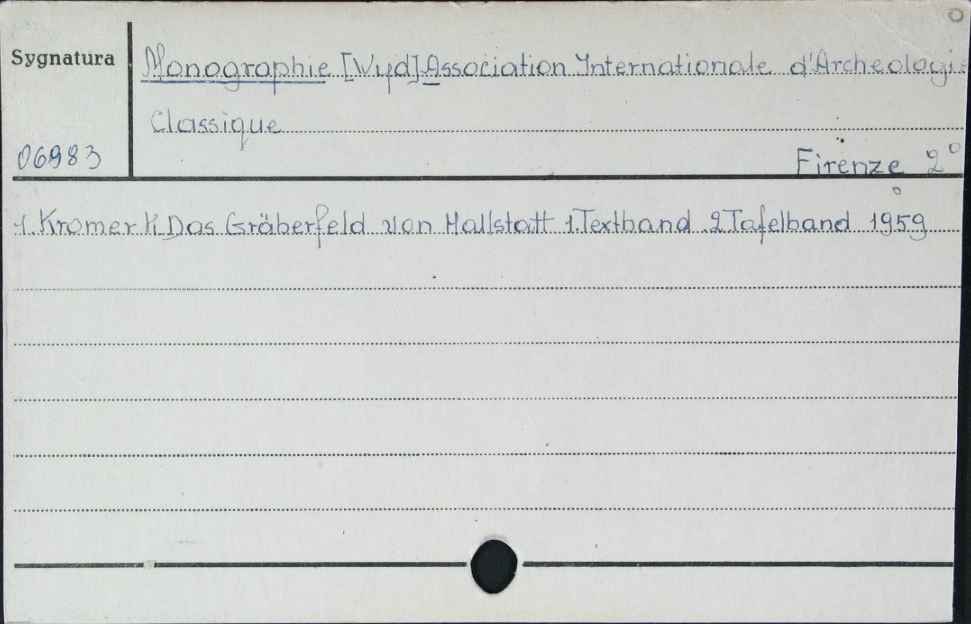 Sygnatura
Monographie [Wyd] Association Internationale d'Archeologie
Classique
06983
Firenze 2°
1. Kromer K. Das Gräberfeld von Hallstatt 1. Textband 2 Tafelband 1959